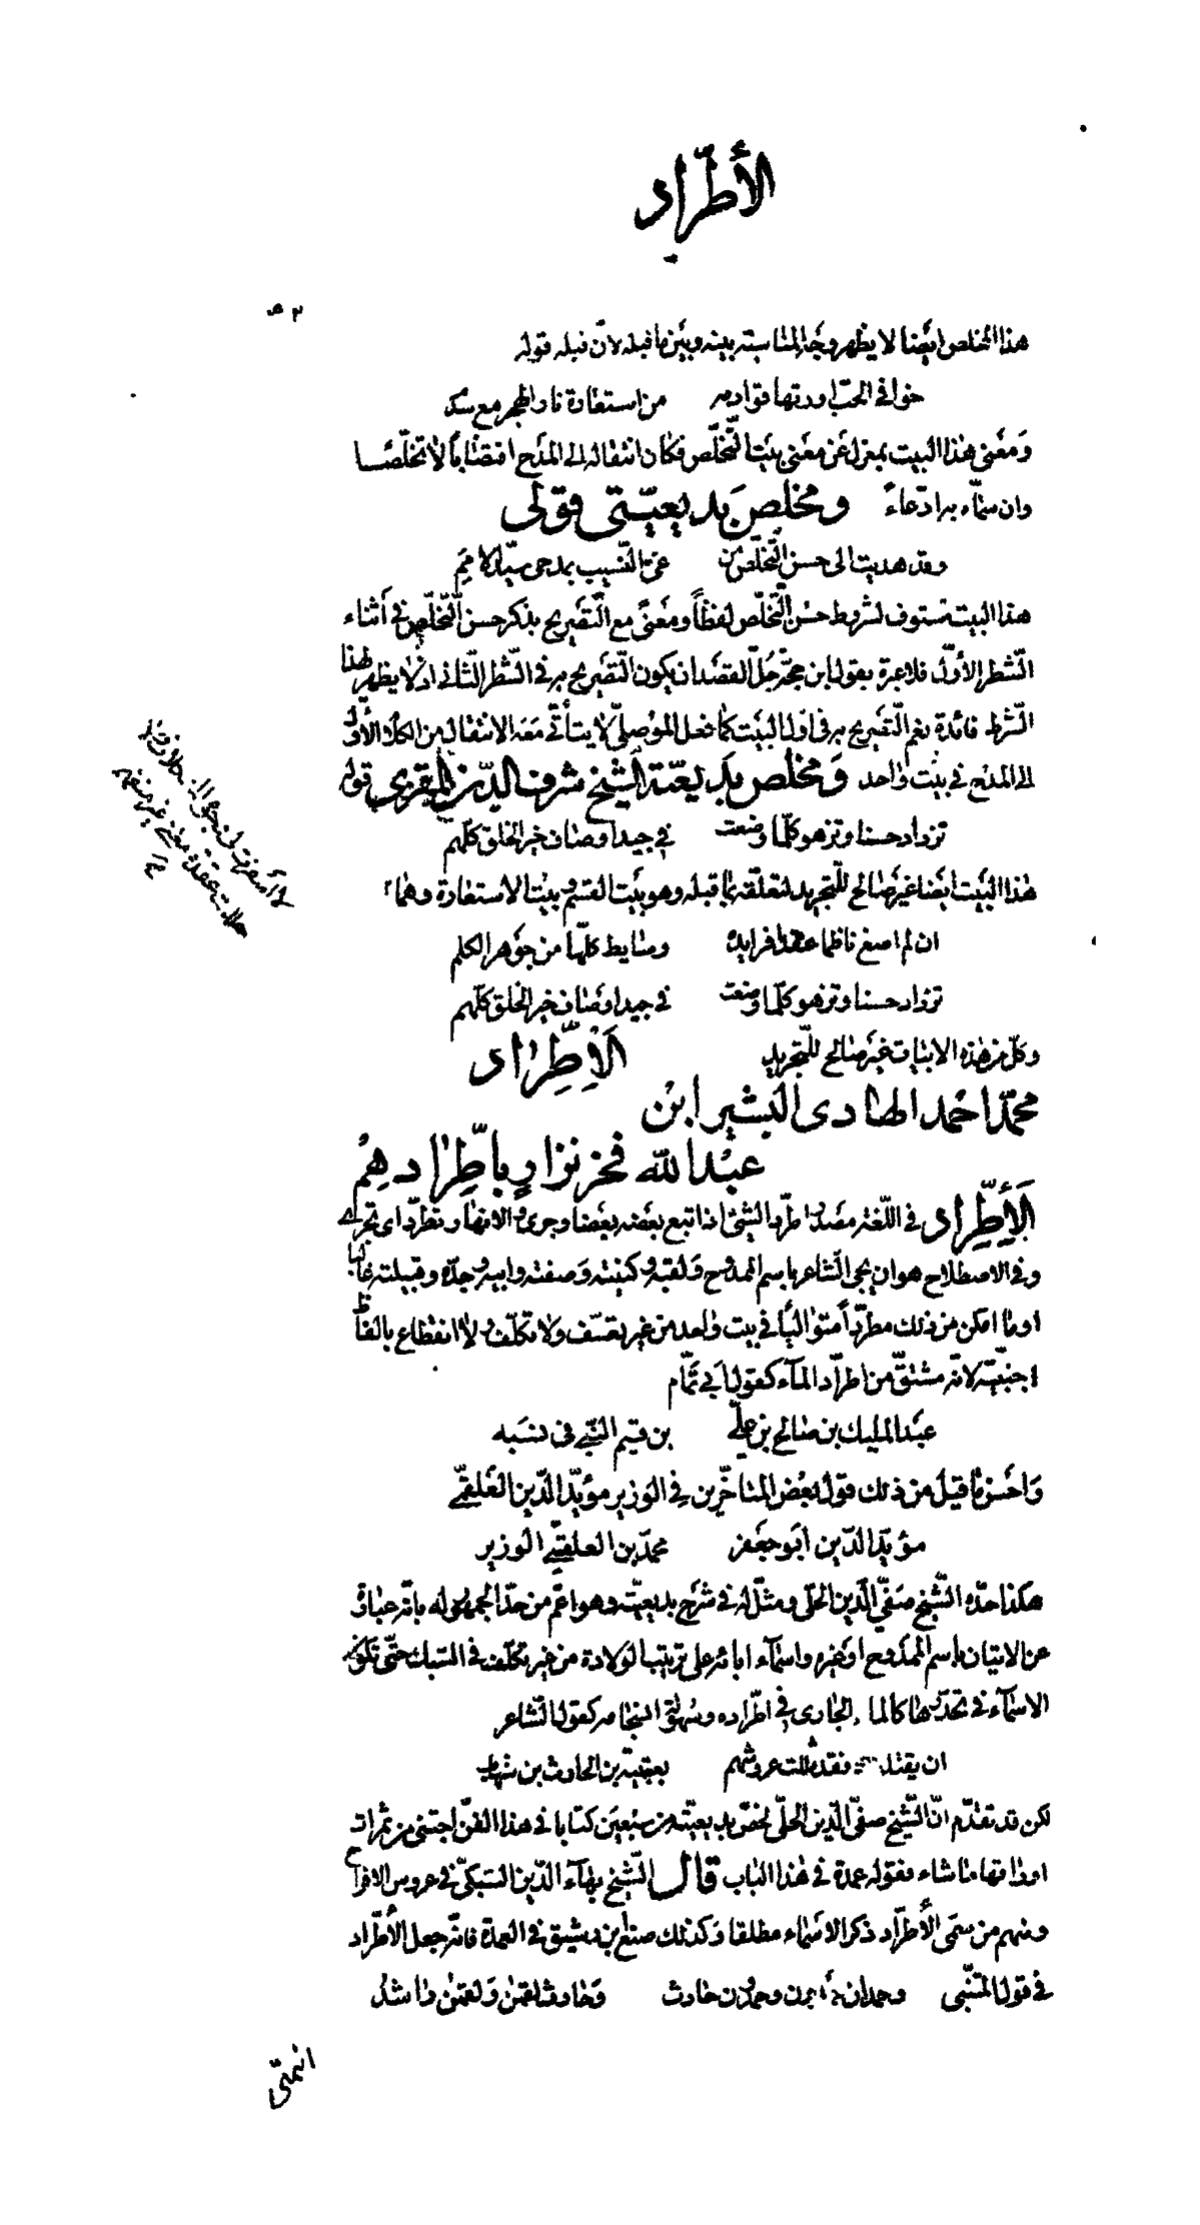 الأطّراد
هذا المخلص ايضا لا يظهر وجه المناسبة بينه وبين ما قبله لانّ قبله قوله
من استعارة نار الهجر مع
ومعنى هذا البيت بمعزل عن معنى بيت التّخلّص فكان انتقاله الى المدح اقتضابا لا تخلّصا
وان سمّاه براد عاء ومخلص بديعيّتى قولى
وقد هديت الى حسن التّخلّص من عىّ النّسيب بمدحى سيّد الامم
هذا البيت مستوف لشروط حسن التّخلّص لفظاً ومعنىً مع التّصريح بذكر حسن التّخلّص فى أثناء
الشّطر الأوّل فلا عبرة بقول ابن حجّة جلّ القصد ان يكون التّصريح به فى الشّطر الثّانى اذ لا يظهر لهذا
الشّرط فائدة نعم التّصريح به فى اوّل البيت كما فعل الموصلىّ لا يتأتّى معه الانتقال من الكلام الأوّل
الى المدح فى بيت واحد ومخلص بديعيّة الشيخ شرف الدّين المقرى قوله
تزداد حسنا وتزهو كلّما وضعت فى جيد اوصاف خير الخلق كلّهم
هذا البيت ايضا غير صالح للتّجريد لتعلّقه بما قبله وهو بيت القسم وبيت الاستعارة وهما
ان لم اصغ ناظما عقدا فرايده وسايط كلّها من جوهر الكلم
تزداد حسنا وتزهو كلّما وضعت فى جيد اوصاف خير الخلق كلّهم
وكلّ من هذه الابيات غير صالح للتّجريد الاطّراد
محمّد احمد الهادى البشير ابن
عبد الله فخر نزار باطّرادهم
الأطّراد فى اللّغة مصدر اطّرد الشىئ اذا تبع بعضه بعضا وجرى والانهار تطّرد اى تجرى
وفى الاصطلاح هو ان يجى الشّاعر باسم الممدوح ولقبه وكنيته وصفته وابيه وجدّه وقبيلته غالبا
او ما امكن من ذلك مطرّداً متواليا فى بيت واحد من غير تعسّف ولا تكلّف ولا انقطاع بالفاظ
اجنبيّة لانّه مشتقّ من اطّراد المآء كقول ابى تمّام
عبد المليك بن صالح بن علىّ بن قسيم النّبىّ فى نسبه
واحسن ما قيل من ذلك قول بعض المتاخّرين فى الوزير مؤيّد الدّين العلقمىّ
مؤيّد الدّين ابو جعفر محمّد بن العلقمىّ الوزير
هكذا حدّه الشّيخ صفىّ الدّين الحلى ومثّل له فى شرح بديعيّته وهو اعمّ من حدّ الجمهور له بانّه عبارة
عن الاتيان باسم الممدوح او غيره واسمآء ابائه على ترتيب الولادة من غير تكلّف فى السّبك حتّى تكون
الاسمآء فى تحدّرها كالمآء الجارى فى اطّراده وسهولة انسجامه كقول الشّاعر
ان يقتلوك فقد ثللت عروشهم بعتيبة بن الحارث بن شهاب
لكن قد تقدّم انّ الشّيخ صفىّ الدّين الحلّى لخّص بديعيّته من سبعين كتابا فى هذا الفنّ اجتنى من ثمرات
اوراقها ما شاء فقوله عمدة فى هذا الباب قال الشّيخ بهآء الدّين السّبكىّ فى عروس الافراح
ومنهم من سمّى الأطّراد ذكر الاسماء مطلقا وكذلك صنع ابن رشيق فى العمدة فانّه جعل الأطّراد
فى قول المتنبّى وحمدان حمدون وحمدون حارث وحارث لقمن ولقمن راشد
انتمى